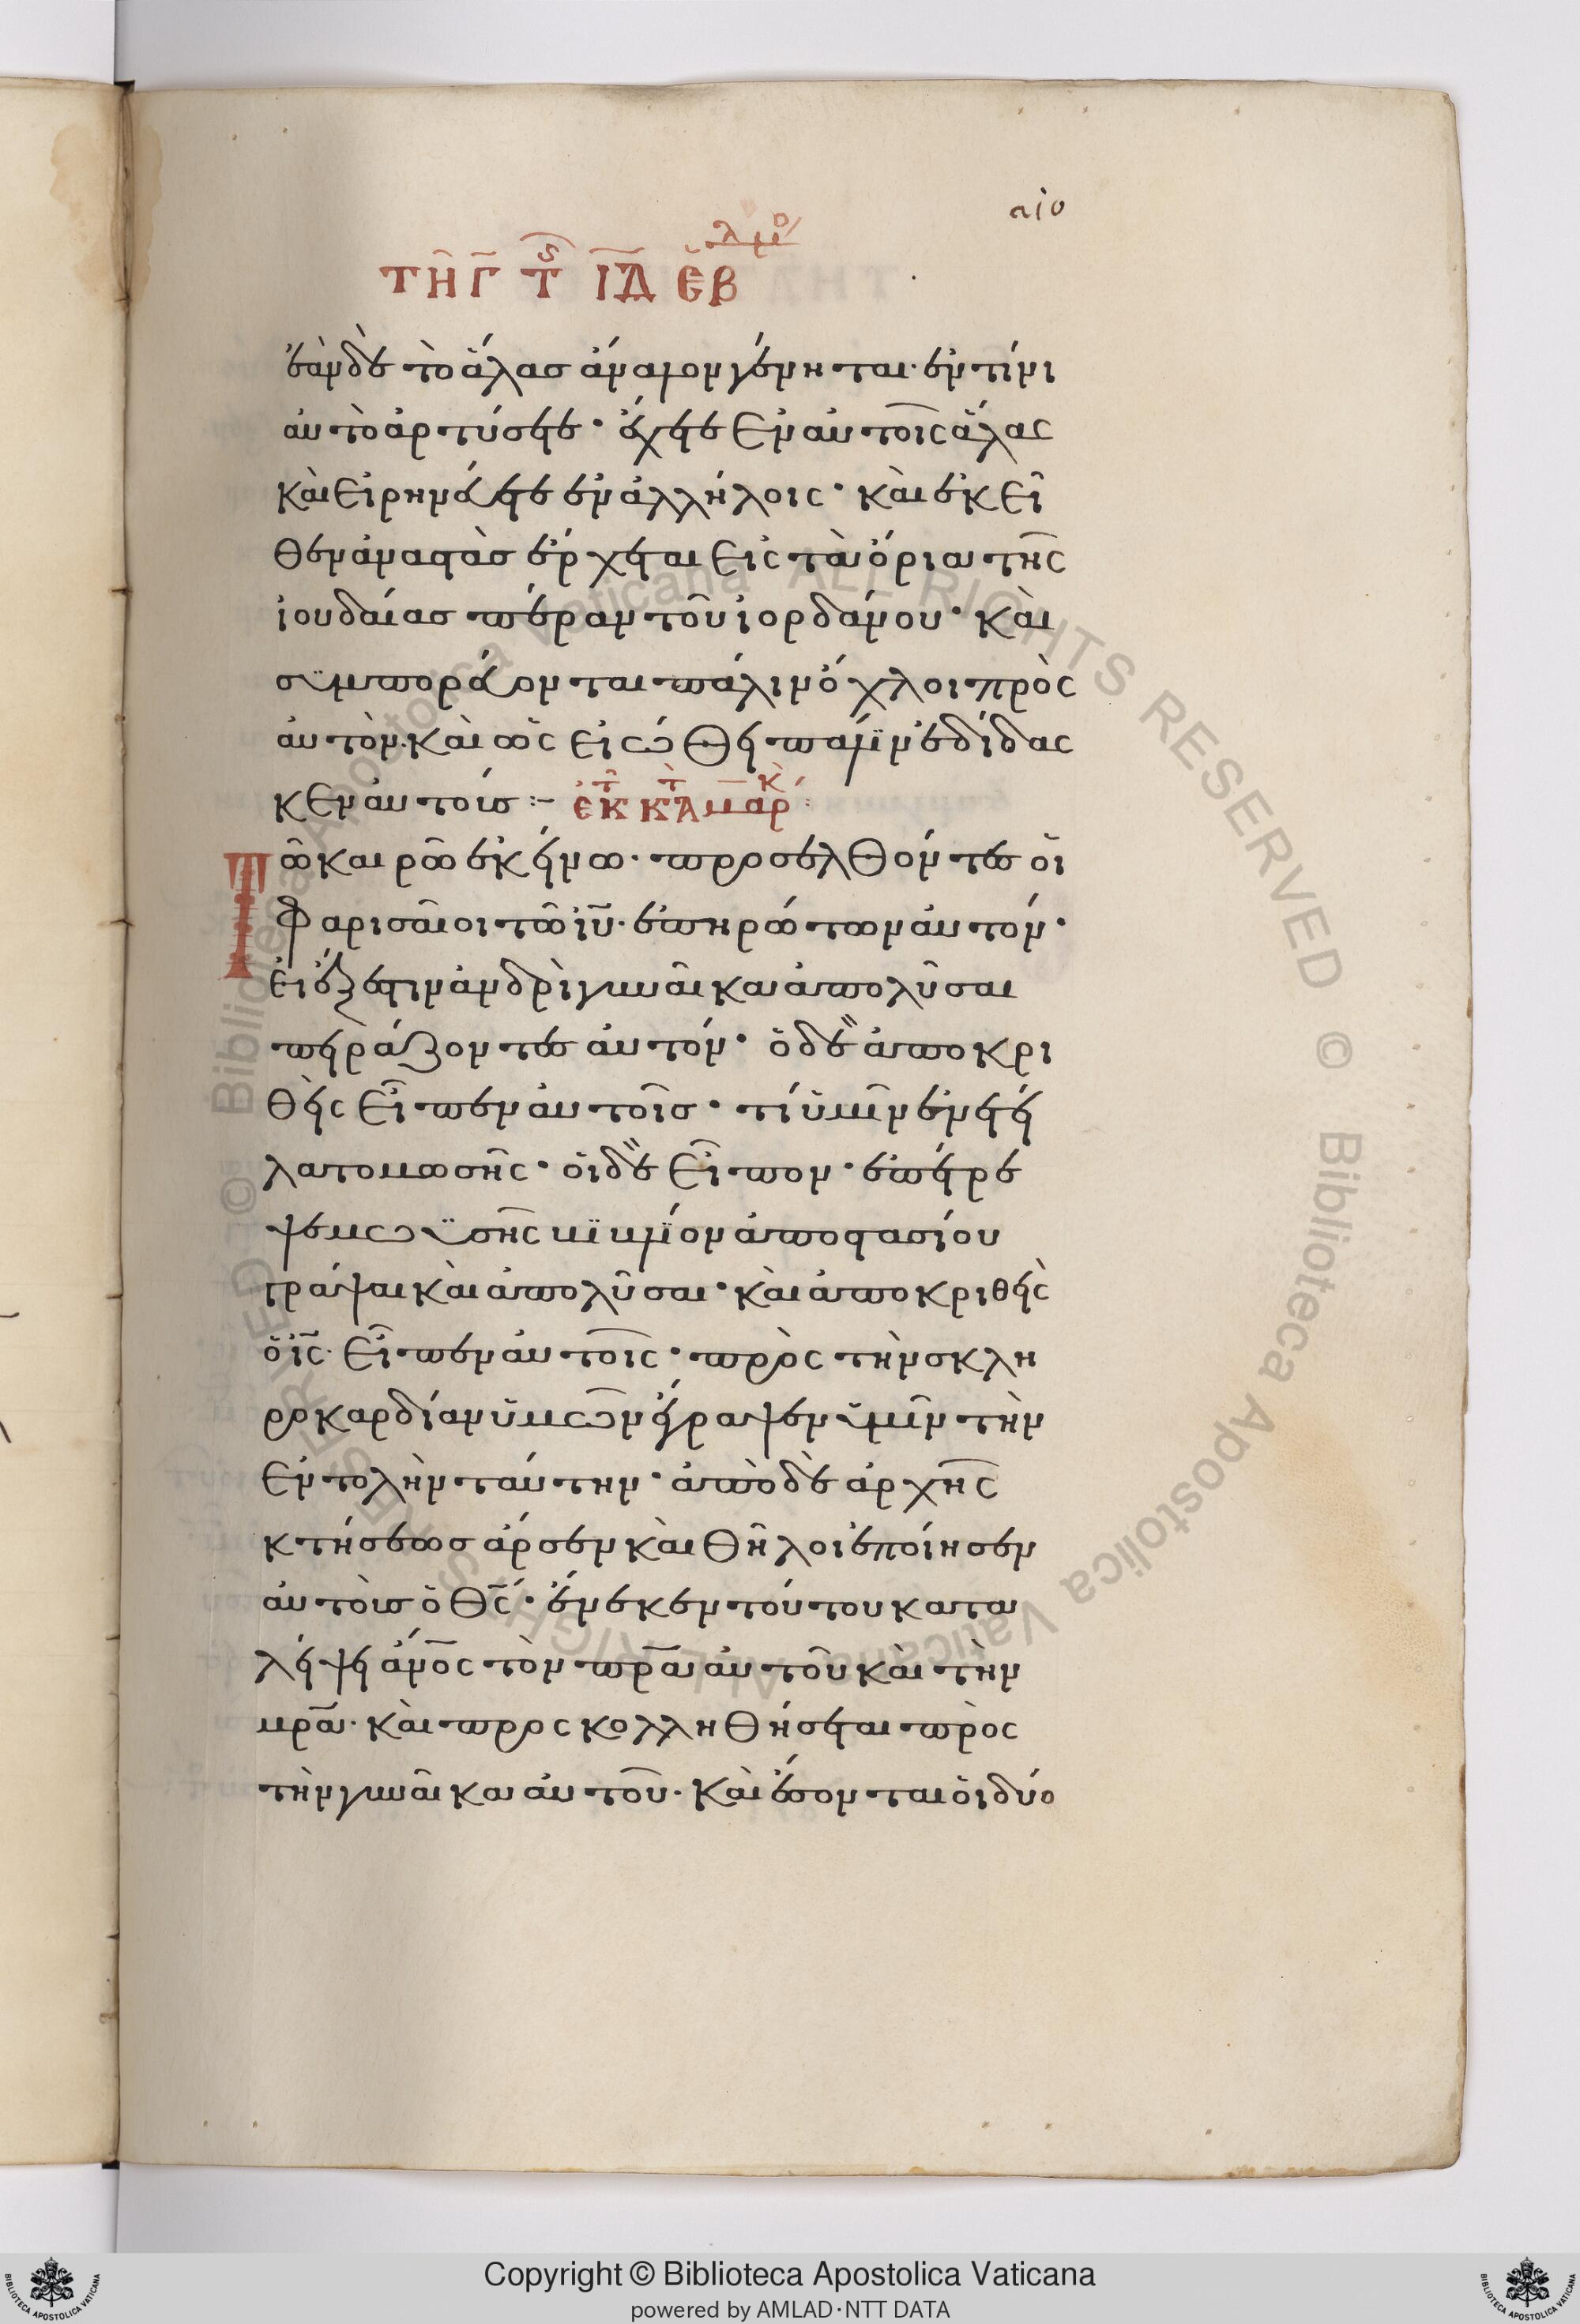 αιο
ΤΗ Γ Τ ΙΔ ΕΒΔΟΜ
ἐὰν δὲ τὸ ἅλας ἄναλον γένηται· ἐν τίνι
αὐτὸ ἀρτύσετε· ἔχετε ἐν αὐτοῖς ἅλας
καὶ εἰρηνεύετε ἐν ἀλλήλοις· καὶ ἐκεῖ
θεν ἀναστὰς ἔρχεται εἰς τὰ ὅρια τῆς
ἰουδαίας πέραν τοῦ ἰορδάνου· καὶ
συμπορεύονται πάλιν ὄχλοι πρὸς
αὐτὸν· καὶ ὡς εἰώθει πάλιν ἐδίδας
κεν αὐτοῖς :– ἐκ τ κτ μαρκ :
Τῶ καιρῶ ἐκείνω· προσελθόντες οἱ
φαρισαῖοι τῶ ἰυ· ἐπηρώτων αὐτόν·
εἰ ἔξεστιν ἀνδρὶ γυναῖκα ἀπολῦσαι
πειράζοντες αὐτόν· ὁ δὲ ἀποκρι
θεὶς εἶπεν αὐτοῖς· τί ὑμῖν ἐνετεί
λατο μωσῆς· οἱ δὲ εἶπον· ἐπέτρε
ψε μωϋσῆς βιβλίον ἀποστασίου
γράψαι καὶ ἀπολῦσαι· καὶ ἀποκριθεὶς
ὁ ις· εἶπεν αὐτοῖς· πρὸς τὴν σκλη
ροκαρδίαν ὑμῶν ἔγραψεν ὑμῖν τὴν
ἐντολὴν ταύτην· ἀπὸ δὲ ἀρχῆς
κτήσεως ἄρσεν καὶ θῆλοι ἐποίησεν
αὐτοὺς ὁ θς· ἕνεκεν τούτου κατα
λείψει ἄνος τὸν πρα αὐτοῦ καὶ τὴν
μρα· καὶ προσκολληθήσεται πρὸς
τὴν γυναῖκα αὐτοῦ· καὶ ἔσονται οἱ δύο
Copyright © Biblioteca Apostolica Vaticana
powered by AMLAD·NTT DATA